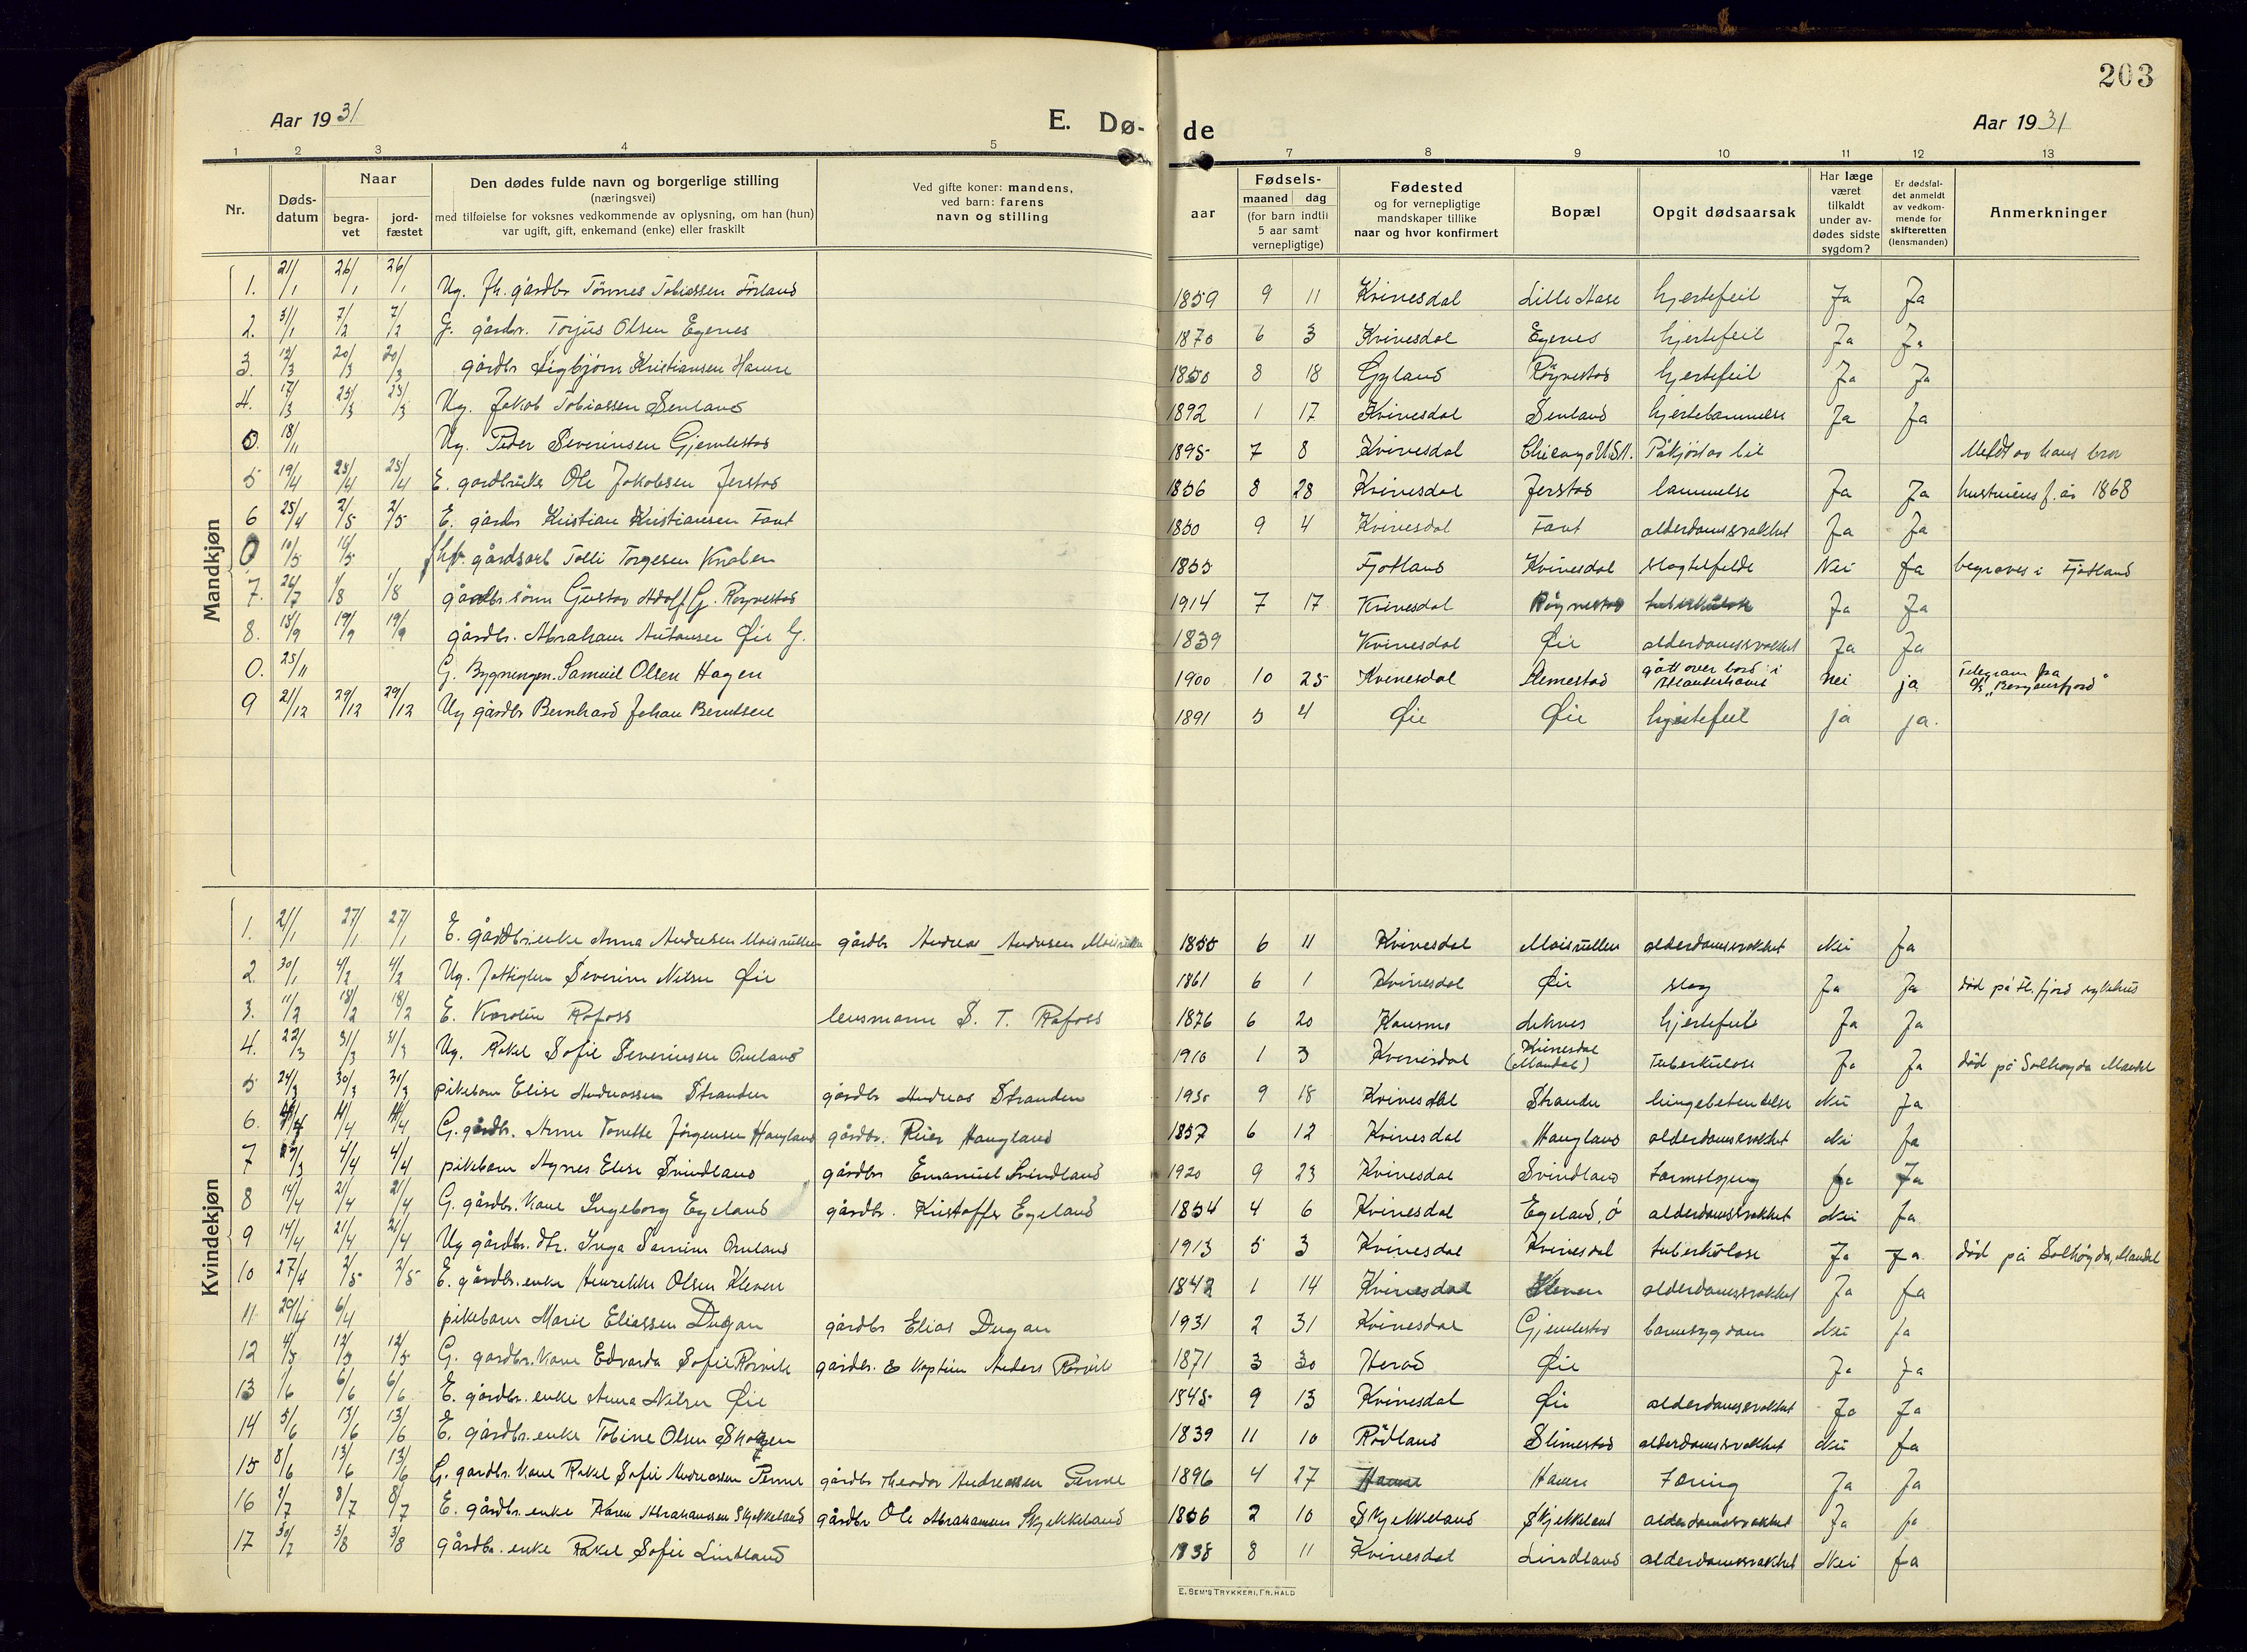 203
Aar 1931
E. Dø-
de
Aar 1931
1 2 3 4 5
7 8 9 10 11 12 13
Nr.
Døds-
datum
Naar
begra-
vet
jord-
fæstet
Den dødes fulde navn og borgerlige stilling
(næringsvei)
med tilføielse for voksnes vedkommende av oplysning, om han (hun)
var ugift, gift, enkemand (enke) eller fraskilt
Ved gifte koner: mandens,
ved barn: farens
navn og stilling
Fødsels-
aar
maaned dag
(for barn indtil
5 aar samt
vernepligtige)
Fødested
og for vernepligtige
mandskaper tillike
naar og hvor konfirmert
Bopæl
Opgit dødsaarsak
Har læge
været
tilkaldt
under av-
dødes sidste
sygdom?
Er dødsfal-
det anmeldt
av vedkom-
mende for
skifteretten
(lensmanden)
Anmerkninger
Mandkjøn
1. 21/1 26/1 26/1 Ug. fh. gårdbr Tönnes Tobiassen Förland 1859 9 11 Kvinesdal Lille Aase hjertefeil Ja Ja
2. 31/1 7/2 7/2 G. gårdbr. Torjus Olsen Egenes 1870 6 3 Kvinesdal Egenes hjertefeil Ja Ja
3. 12/3 20/3 20/3 gårdbr Sigbjörn Kristiansen Hamre 1850 8 18 Gyland Röynestad hjertefeil Ja Ja
4. 17/3 25/3 25/3 Ug. Jakob Tobiassen Senland 1892 1 17 Kvinesdal Senland hjertelammelse Ja Ja
0. 18/11 Ug. Peder Severinsen Gjemlestad 1895 7 8 Kvinesdal Chicago U.S.A. Påkjört av bil Meldt av hans bror
5 19/4 25/4 25/4 E. gardbruker Ole Jakobsen Jerstad 1856 8 28 Kvinesdal Jerstad lammelse Ja Ja hustruens f. år 1868
6 25/4 2/5 2/5 E. gårdbr Kristian Kristiansen Faret 1850 9 4 Kvinesdal Faret alderdomssvakhet Ja Ja
0 10/5 16/5 fhv. gårdsarb Tolli Torgesen Knaben 1855 Fjotland Kvinesdal slagtilfelde Nei Ja begraves i Fjotland
7. 26/7 1/8 1/8 gårdbr. sönn Gustav Adolf G. Röynestad 1914 7 17 Kvinesdal Röynestad tuberkulose Ja Ja
8. 15/9 19/9 19/9 gårdbr. Abraham Antonsen Øie G. 1839 Kvinesdal Øie alderdomssvakhet Ja Ja
0. 25/11 G. Bygningsm. Samuel Olsen Hagen 1900 10 25 Kvinesdal Slemestad gått over bord i
Atlanterhavet nei ja Telegram fra
D/S "Bergensfjord"
9 21/12 29/12 29/12 Ug gårdbr Bernhard Johan Berntsen 1891 5 4 Øie Øie hjertefeil ja ja.
Kvindekjøn
1. 21/1 27/1 27/1 E. gårdbr.enke Anna Andersen Moisrullen gårdbr Andreas Andersen 1855 6 11 Kvinesdal Moisrullen alderdomssvakhet Nei Ja
2. 30/1 4/2 4/2 Ug. fattiglem Severine Nilsen Øie 1861 6 1 Kvinesdal Øie slag Ja Ja död på Fl.fjord sykehus
3. 11/2 18/2 18/2 E. Karolin Rafoss lensmann S. T. Rafoss 1876 6 20 Liknes hjertefeil Ja Ja
4. 22/3 31/3 31/3 Ug. Rakel Sofie Severinsen Omland 1910 1 3 Kvinesdal Kvinesdal
(Mandal) Tuberkulose Ja Ja död på Solhøgda Mandal
5 24/3 30/3 30/3 pikebarn Elise Andreassen Stranden gårdbr Andreas Stranden 1930 9 18 Kvinesdal Stranden lungebetendelse Nei Ja
6. 4/4 11/4 11/4 G. gårdbr. Anne Tonette Jörgensen Haugland gårdbr. Reier Haugland 1857 6 12 Kvinesdal Haugland alderdomssvakhet Nei Ja
7 29/3 4/4 4/4 pikebarn Agnes Elise Svindland gårdbr Emanuel Svindland 1920 9 23 Kvinesdal Svindland tarmslyng Ja Ja
8 14/4 21/4 21/4 G. gårdbr. kone Ingeborg Egeland gårdbr. Kristoffer Egeland 1854 4 6 Kvinesdal Egeland, ö alderdomssvakhet Nei Ja
9 14/4 21/4 21/4 Ug gårdbr. dtr. Inga Samine Omland 1913 5 3 Kvinesdal Kvinesdal tuberkulose Ja Ja död på Solhögda, Mandal
10 27/4 2/5 2/5 E. gårdbr. enke Henrikke Olsen Kleven 1842 1 14 Kvinesdal Kleven alderdomssvakhet Ja Ja
11 29/4 6/4 pikebarn Marie Eliassen Dugan gårdbr Elias Dugan 1931 2 31 Kvinesdal Gjemlestad barnesygdom Nei Ja
12 4/5 12/5 12/5 G. gardbr. kone Edvarda Sofie Rörvik gardbr. & kaptein Anders Rörvik 1871 3 30 Herad Øie Ja Ja
13 1/6 6/6 6/6 E. gårdbr. enke Anna Nilsen Øie 1845 9 13 Kvinesdal Øie alderdomssvakhet Ja Ja
14 5/6 13/6 13/6 E. gårdbr. enke Tobine Olsen Skogen 1839 11 10 Rödland Slimestad alderdomssvakhet Nei Ja
15 8/6 13/6 13/6 G. gardbr. kone Rakel Sofie Andreassen Penne gårdbr Theodor Andreassen Penne 1896 4 27 Hamre Hamre Tæring Ja Ja
16 2/7 8/7 8/7 E. gårdbr. enke Karen Abrahamsen Skjekkeland gårdbr Ole Abrahamsen Skjekkeland 1856 2 10 Skjekkeland Skjekkeland alderdomssvakhet Ja Ja
17 30/7 3/8 3/8 gårdbr. enke Rakel Sofie Lindland 1838 8 11 Kvinesdal Lindland alderdomssvakhet Nei Ja
E. SEM'S TRYKKERI, FR. HALD